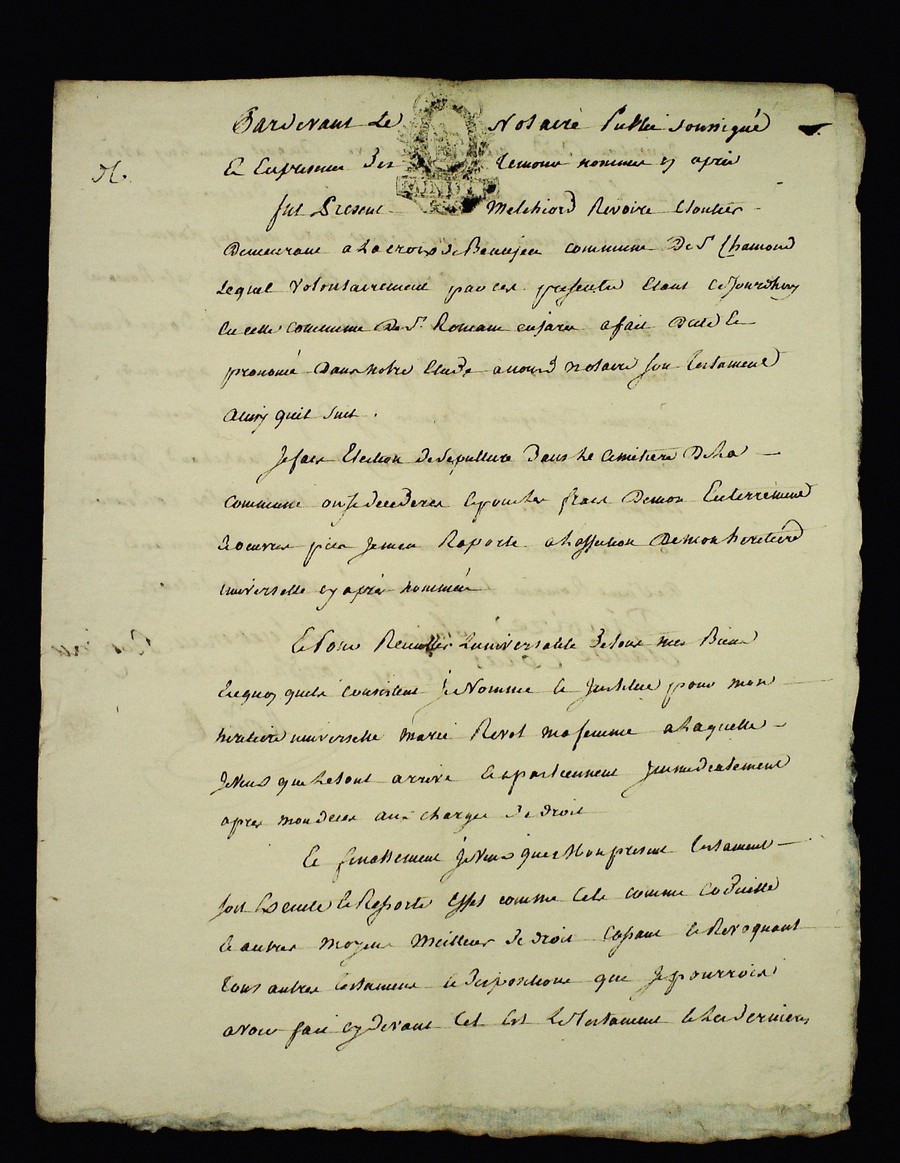 Pardevant Le Notaire Public soussigné
Et En presence des temoins nommes cy apres
fut Present Melchiord Revoire Cloutier
Demeurant a La croix de Beaujeu commune De St Chamond
Lequel Volontairement par ces presentes Etant cejourdhuy
En cette commune De St Romain enjarez a fait Dicté Et
prononcé Dans notre Etude a nous Notaire son testament
Ainsy quil suit.
Je fais Election de sepulture Dans Le Cimetiere De La
commune ou Je decederes Et pour les frais Demon Enterrement
Et oeuvres pies Jemen Raporte a Laffection Demon heritiere
universelle cy apres nommée
Et Pour Recuillir Luniversalité De tous mes Biens
En quoy quils consistent Je Nomme Et Institue pour mon
heritiere universelle marie Revol ma femme a Laquelle
Je veux que Le tout arrive Et apartiennent Immediatement
apres mon deces aux charges De droit
Et finallement Je Veux que Mon present testament
soit Executé Et Ressorte Effet comme tels comme codicille
Et autres moyens Meilleurs De droit Cassant Et Revoquant
tous autres testament Et Dispositions que Je pourrois
avoir fait cy devant Cet Est Le testament Et Les dernieres